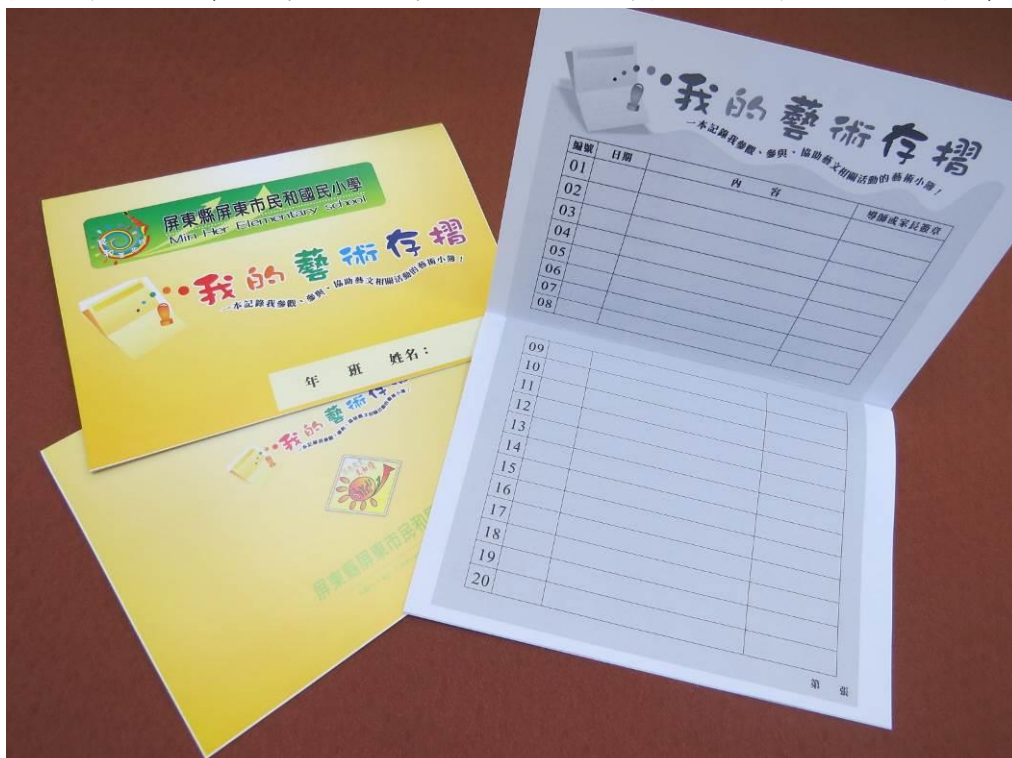 屏東縣屏東市民和國民小學
Min Her Elementary School
我的藝術存摺
一本記錄我參觀、參與、協助藝文相關活動的藝術小簿！
年 班 姓名：
我的藝術存
屏東縣屏東市民和
我的藝術存摺
一本記錄我參觀、參與、協助藝文相關活動的藝術小簿！
編號 日期 內容 導師或家長簽章
01
02
03
04
05
06
07
08
09
10
11
12
13
14
15
16
17
18
19
20
第 張